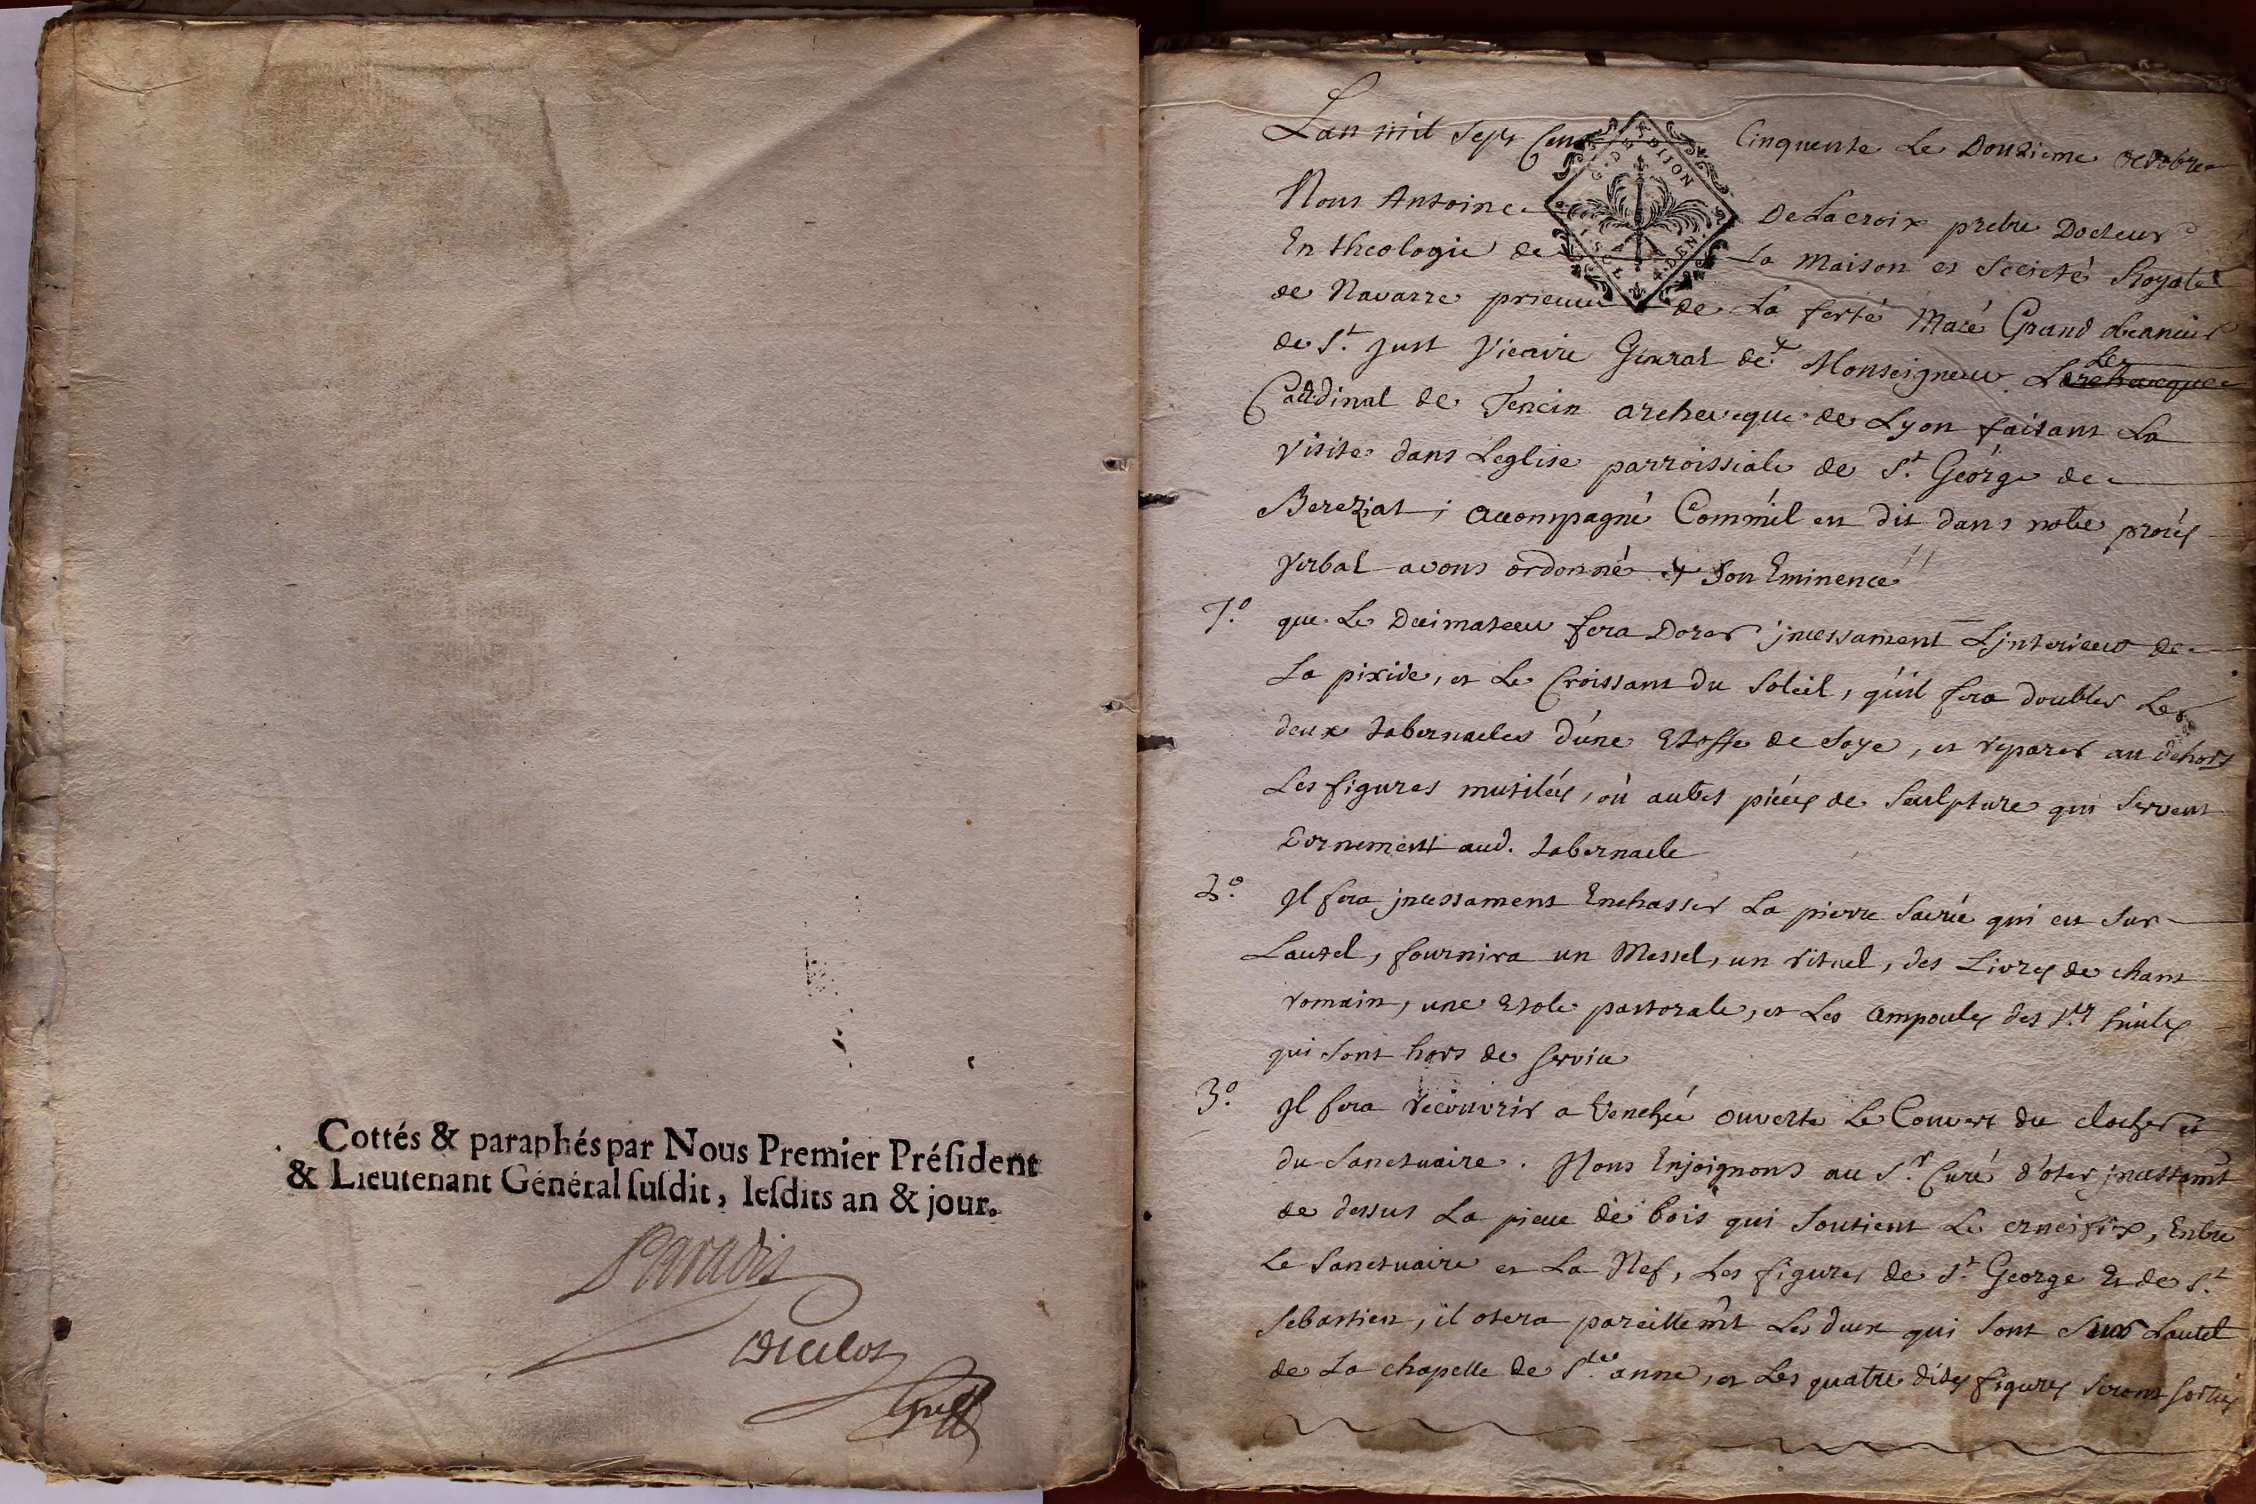 Cottés & paraphés par Nous Premier Préſident
& Lieutenant Général ſuſdit, leſdits an & jour.
Paradis
Duclos
Greff
G. DE DIJON
4. DEN.
Lan mil Sept Cent Cinquente Le Douzieme octobre
Nous Antoine DeLacroix prebtre Docteur
En theologie de La Maison et Societé Royale
de Navarre prieur de La ferté Macé Grand obeancier
de St. Just Vicaire General de Monseigneur Larcheveque Le
Cardinal de Tencin archeveque de Lyon faisant La
visite dans Leglise parroissiale de St. George de
Bereziat; acompagné Comm'il est dit dans notre procés
verbal avons ordonné + Son Eminence
1.° que Le Decimateur fera Dorer jncessament L'jnterieur de
La pixide, et Le Croissant du Soleil, qu'il fera doubler Les
deux tabernacles d'une Etoffe de Soye, et reparer au dehors
Les figures mutilées, où autres piéces de Sculpture qui Servent
Dornement aud. tabernacle
2.° Jl fera jncessament Enchasser La pierre Sacrée qui est Sur
Lautel, fournira un Messel, un rituel, des Livres de chant
romain, une Etole pastorale, et Les ampoules des Stes huiles
qui Sont hors de Service
3.° Jl fera recouvrir a tranchée ouverte Le Couvert du clocher et
du Sanctuaire. Nous Enjoignons au Sr. Curé d'oter jncessamt
de dessus La piece de bois qui Soutient Le crucifix, Entre
Le Sanctuaire et La Nef, Les figures de St. George Et de St.
Sebastien, il otera pareillemt Les deux qui Sont Sur Lautel
de La chapelle de Ste anne, et Les quatre dites figures Seront Sorties